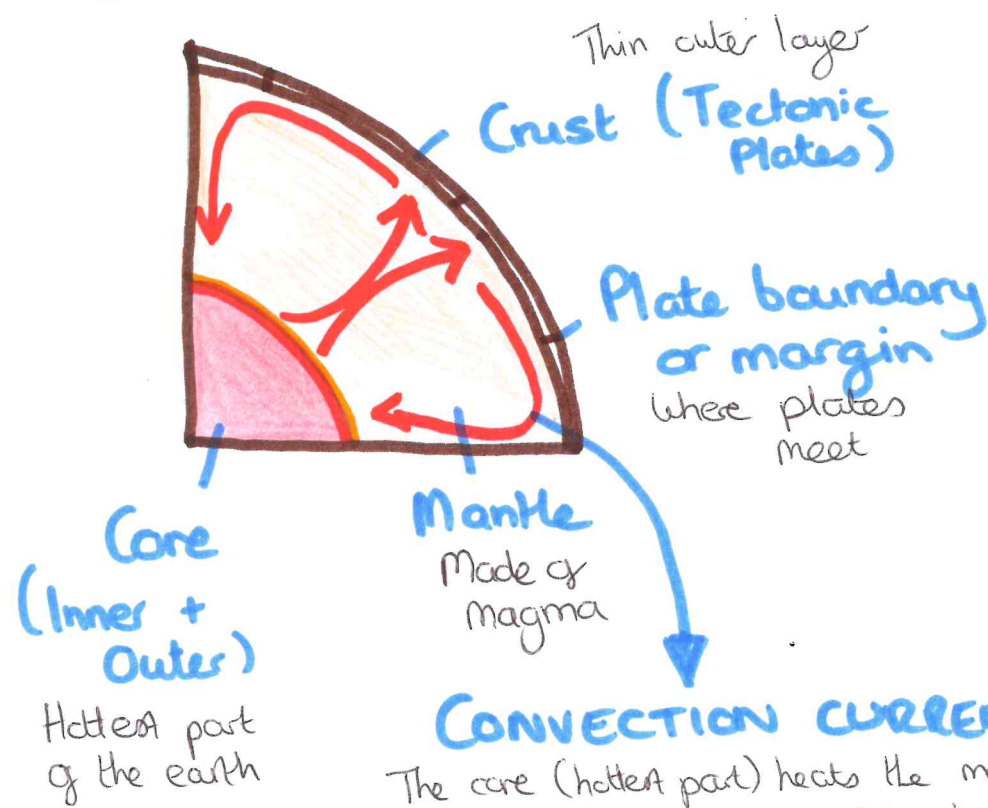 Thin outer layer
Crust (Tectonic
Plates)
Plate boundary
or margin
where plates
meet
Core
(Inner +
Outer)
Hottest part
of the earth
Mantle
Made of
magma
CONVECTION CURRE
The core (hottest part) heats the m